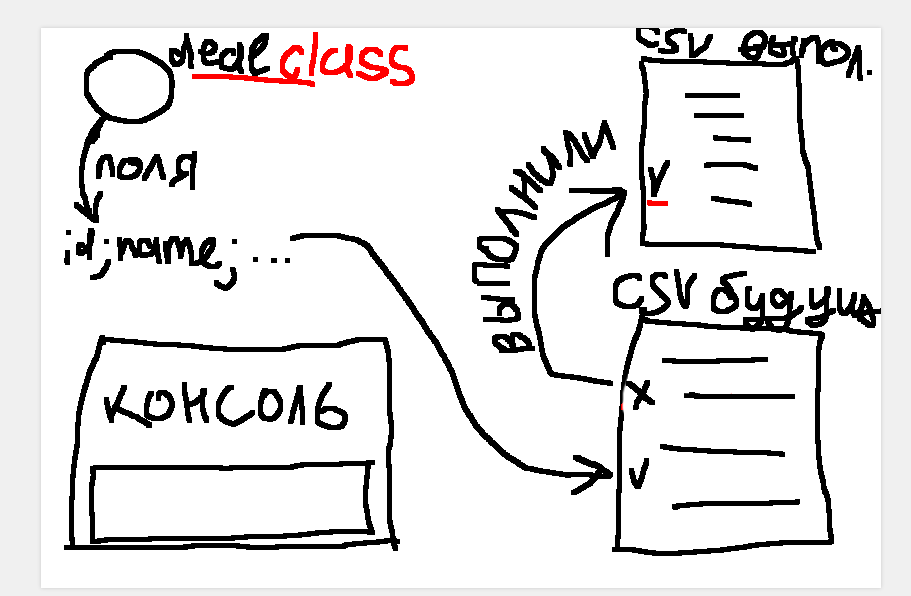 deal class
поля
id; name; ...
КОНСОЛЬ
CSV выпол.
ВЫПОЛНИЛИ
CSV будущ
x
v
v